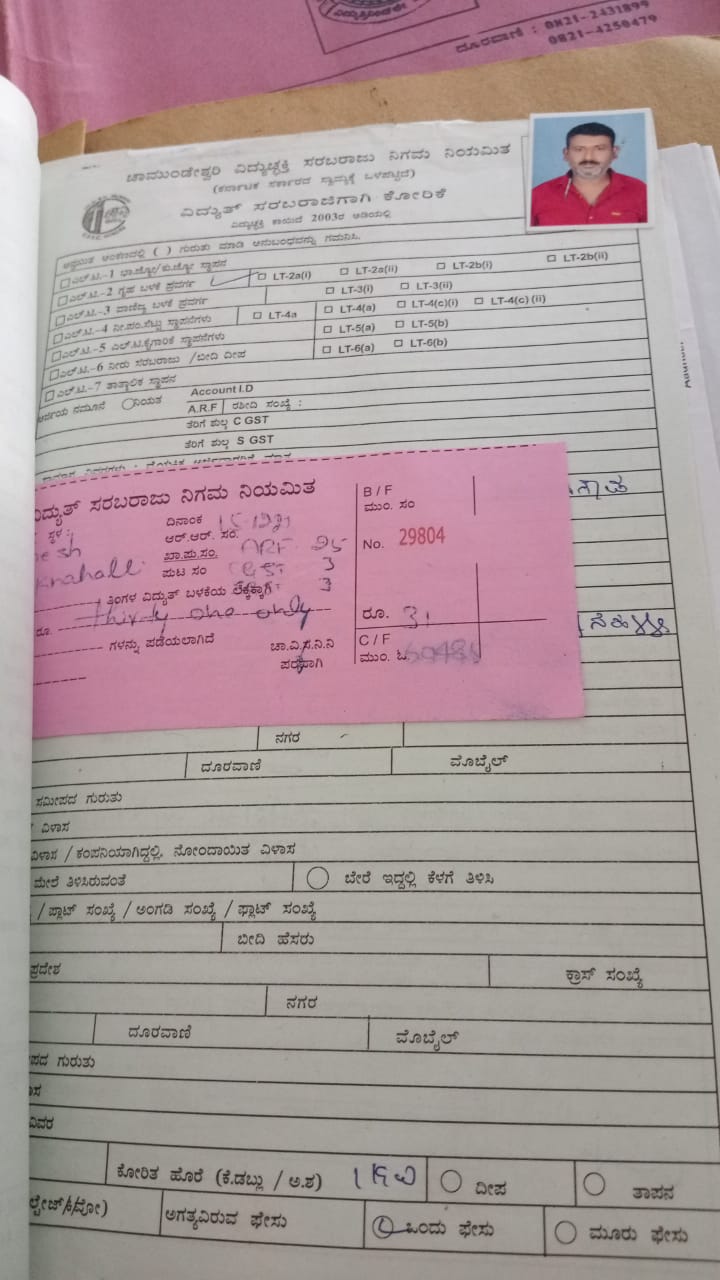 ದೂರವಾಣಿ : 0821-2431899
0821-4250479
ಚಾಮುಂಡೇಶ್ವರಿ ವಿದ್ಯುಚ್ಛಕ್ತಿ ಸರಬರಾಜು ನಿಗಮ ನಿಯಮಿತ
(ಕರ್ನಾಟಕ ಸರ್ಕಾರದ ಸ್ವಾಮ್ಯಕ್ಕೆ ಒಳಪಟ್ಟಿದೆ)
ವಿದ್ಯುತ್ ಸರಬರಾಜಿಗಾಗಿ ಕೋರಿಕೆ
ವಿದ್ಯುಚ್ಛಕ್ತಿ ಕಾಯಿದೆ 2003ರ ಅಡಿಯಲ್ಲಿ
ಅನ್ವಯಿತ ಅಂಕಣದಲ್ಲಿ ( ) ಗುರುತು ಮಾಡಿ ಅನುಬಂಧವನ್ನು ಗಮನಿಸಿ.
ಎಲ್.ಟಿ.-1 ಭಾ.ಜ್ಯೋ/ಕು.ಜ್ಯೋ ಸ್ಥಾಪನ
ಎಲ್.ಟಿ.-2 ಗೃಹ ಬಳಕೆ ಪ್ರವರ್ಗ LT-2a(i) LT-2a(ii) LT-2b(i) LT-2b(ii)
ಎಲ್.ಟಿ.-3 ವಾಣಿಜ್ಯ ಬಳಕೆ ಪ್ರವರ್ಗ LT-3(i) LT-3(ii)
ಎಲ್.ಟಿ.-4 ನೀ.ಪಂ.ಸೆಟ್ಟು ಸ್ಥಾಪನೆಗಳು LT-4a LT-4(a) LT-4(c)(i) LT-4(c) (ii)
ಎಲ್.ಟಿ.-5 ಎಲ್.ಟಿ.ಕೈಗಾರಿಕೆ ಸ್ಥಾಪನೆಗಳು LT-5(a) LT-5(b)
ಎಲ್.ಟಿ.-6 ನೀರು ಸರಬರಾಜು /ಬೀದಿ ದೀಪ LT-6(a) LT-6(b)
ಎಲ್.ಟಿ.-7 ತಾತ್ಕಾಲಿಕ ಸ್ಥಾಪನ
ಅರ್ಜಿಯ ನಮೂನೆ ನಿಯತ Account I.D
A.R.F ರಶೀದಿ ಸಂಖ್ಯೆ :
ತೆರಿಗೆ ಶುಲ್ಕ C GST
ತೆರಿಗೆ ಶುಲ್ಕ S GST
ವಿದ್ಯುತ್ ಸರಬರಾಜು ನಿಗಮ ನಿಯಮಿತ
B / F
ಮುಂ. ಸಂ
ಸ್ಥಳ :
ದಿನಾಂಕ
ಆರ್.ಆರ್. ಸಂ.
ಖಾ.ಪು.ಸಂ. ARF 25
No. 29804
esh
ಪುಟ ಸಂ CGST 3
3
ತಿಂಗಳ ವಿದ್ಯುತ್ ಬಳಕೆಯ ಲೆಕ್ಕಕ್ಕಾಗಿ
ರೂ. thirty one only
ರೂ. 31
ಗಳನ್ನು ಪಡೆಯಲಾಗಿದೆ
ಚಾ.ವಿ.ಸ.ನಿ.ನಿ
ಪರವಾಗಿ
C / F
ಮುಂ. ಓ.
ನಗರ
ದೂರವಾಣಿ ಮೊಬೈಲ್
ಸಮೀಪದ ಗುರುತು
ವಿಳಾಸ
ವಿಳಾಸ / ಕಂಪನಿಯಾಗಿದ್ದಲ್ಲಿ, ನೋಂದಾಯಿತ ವಿಳಾಸ
ಮೇಲೆ ತಿಳಿಸಿರುವಂತೆ ಬೇರೆ ಇದ್ದಲ್ಲಿ ಕೆಳಗೆ ತಿಳಿಸಿ
/ ಪ್ಲಾಟ್ ಸಂಖ್ಯೆ / ಅಂಗಡಿ ಸಂಖ್ಯೆ / ಫ್ಲಾಟ್ ಸಂಖ್ಯೆ
ಬೀದಿ ಹೆಸರು
ಪ್ರದೇಶ ಕ್ರಾಸ್ ಸಂಖ್ಯೆ
ನಗರ
ದೂರವಾಣಿ ಮೊಬೈಲ್
ಪದ ಗುರುತು
ಾಸ
ವಿವರ
ಕೋರಿತ ಹೊರೆ (ಕೆ.ಡಬ್ಲು / ಅ.ಶ) ದೀಪ ತಾಪನ
ಅಗತ್ಯವಿರುವ ಫೇಸು ಒಂದು ಫೇಸು ಮೂರು ಫೇಸು